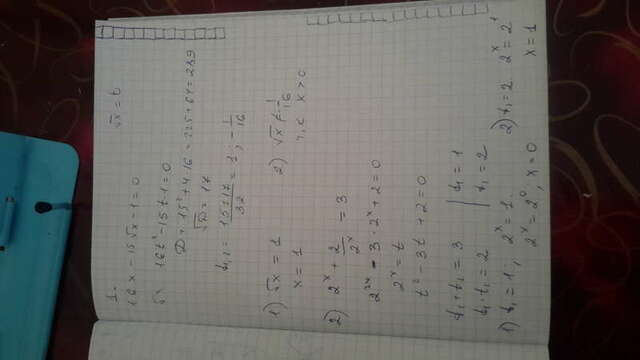 1.
16x - 15√x - 1 = 0
√x = t
16t² - 15t - 1 = 0
D = 15² + 4·16 = 225 + 64 = 289
√D = 17
t₁,₂ = (15±17)/32 = 1; -1/16
1) √x = 1
x = 1
2) √x ≠ -1/16
x > 0
2) 2^x + 2/2^x = 3
2^2x - 3·2^x + 2 = 0
2^x = t
t² - 3t + 2 = 0
t₁ + t₂ = 3 | t₁ = 1
t₁·t₂ = 2 | t₂ = 2
1) t₁ = 1, 2^x = 1
2^x = 2⁰, x = 0
2) t₁ = 2 2^x = 2¹
x = 1